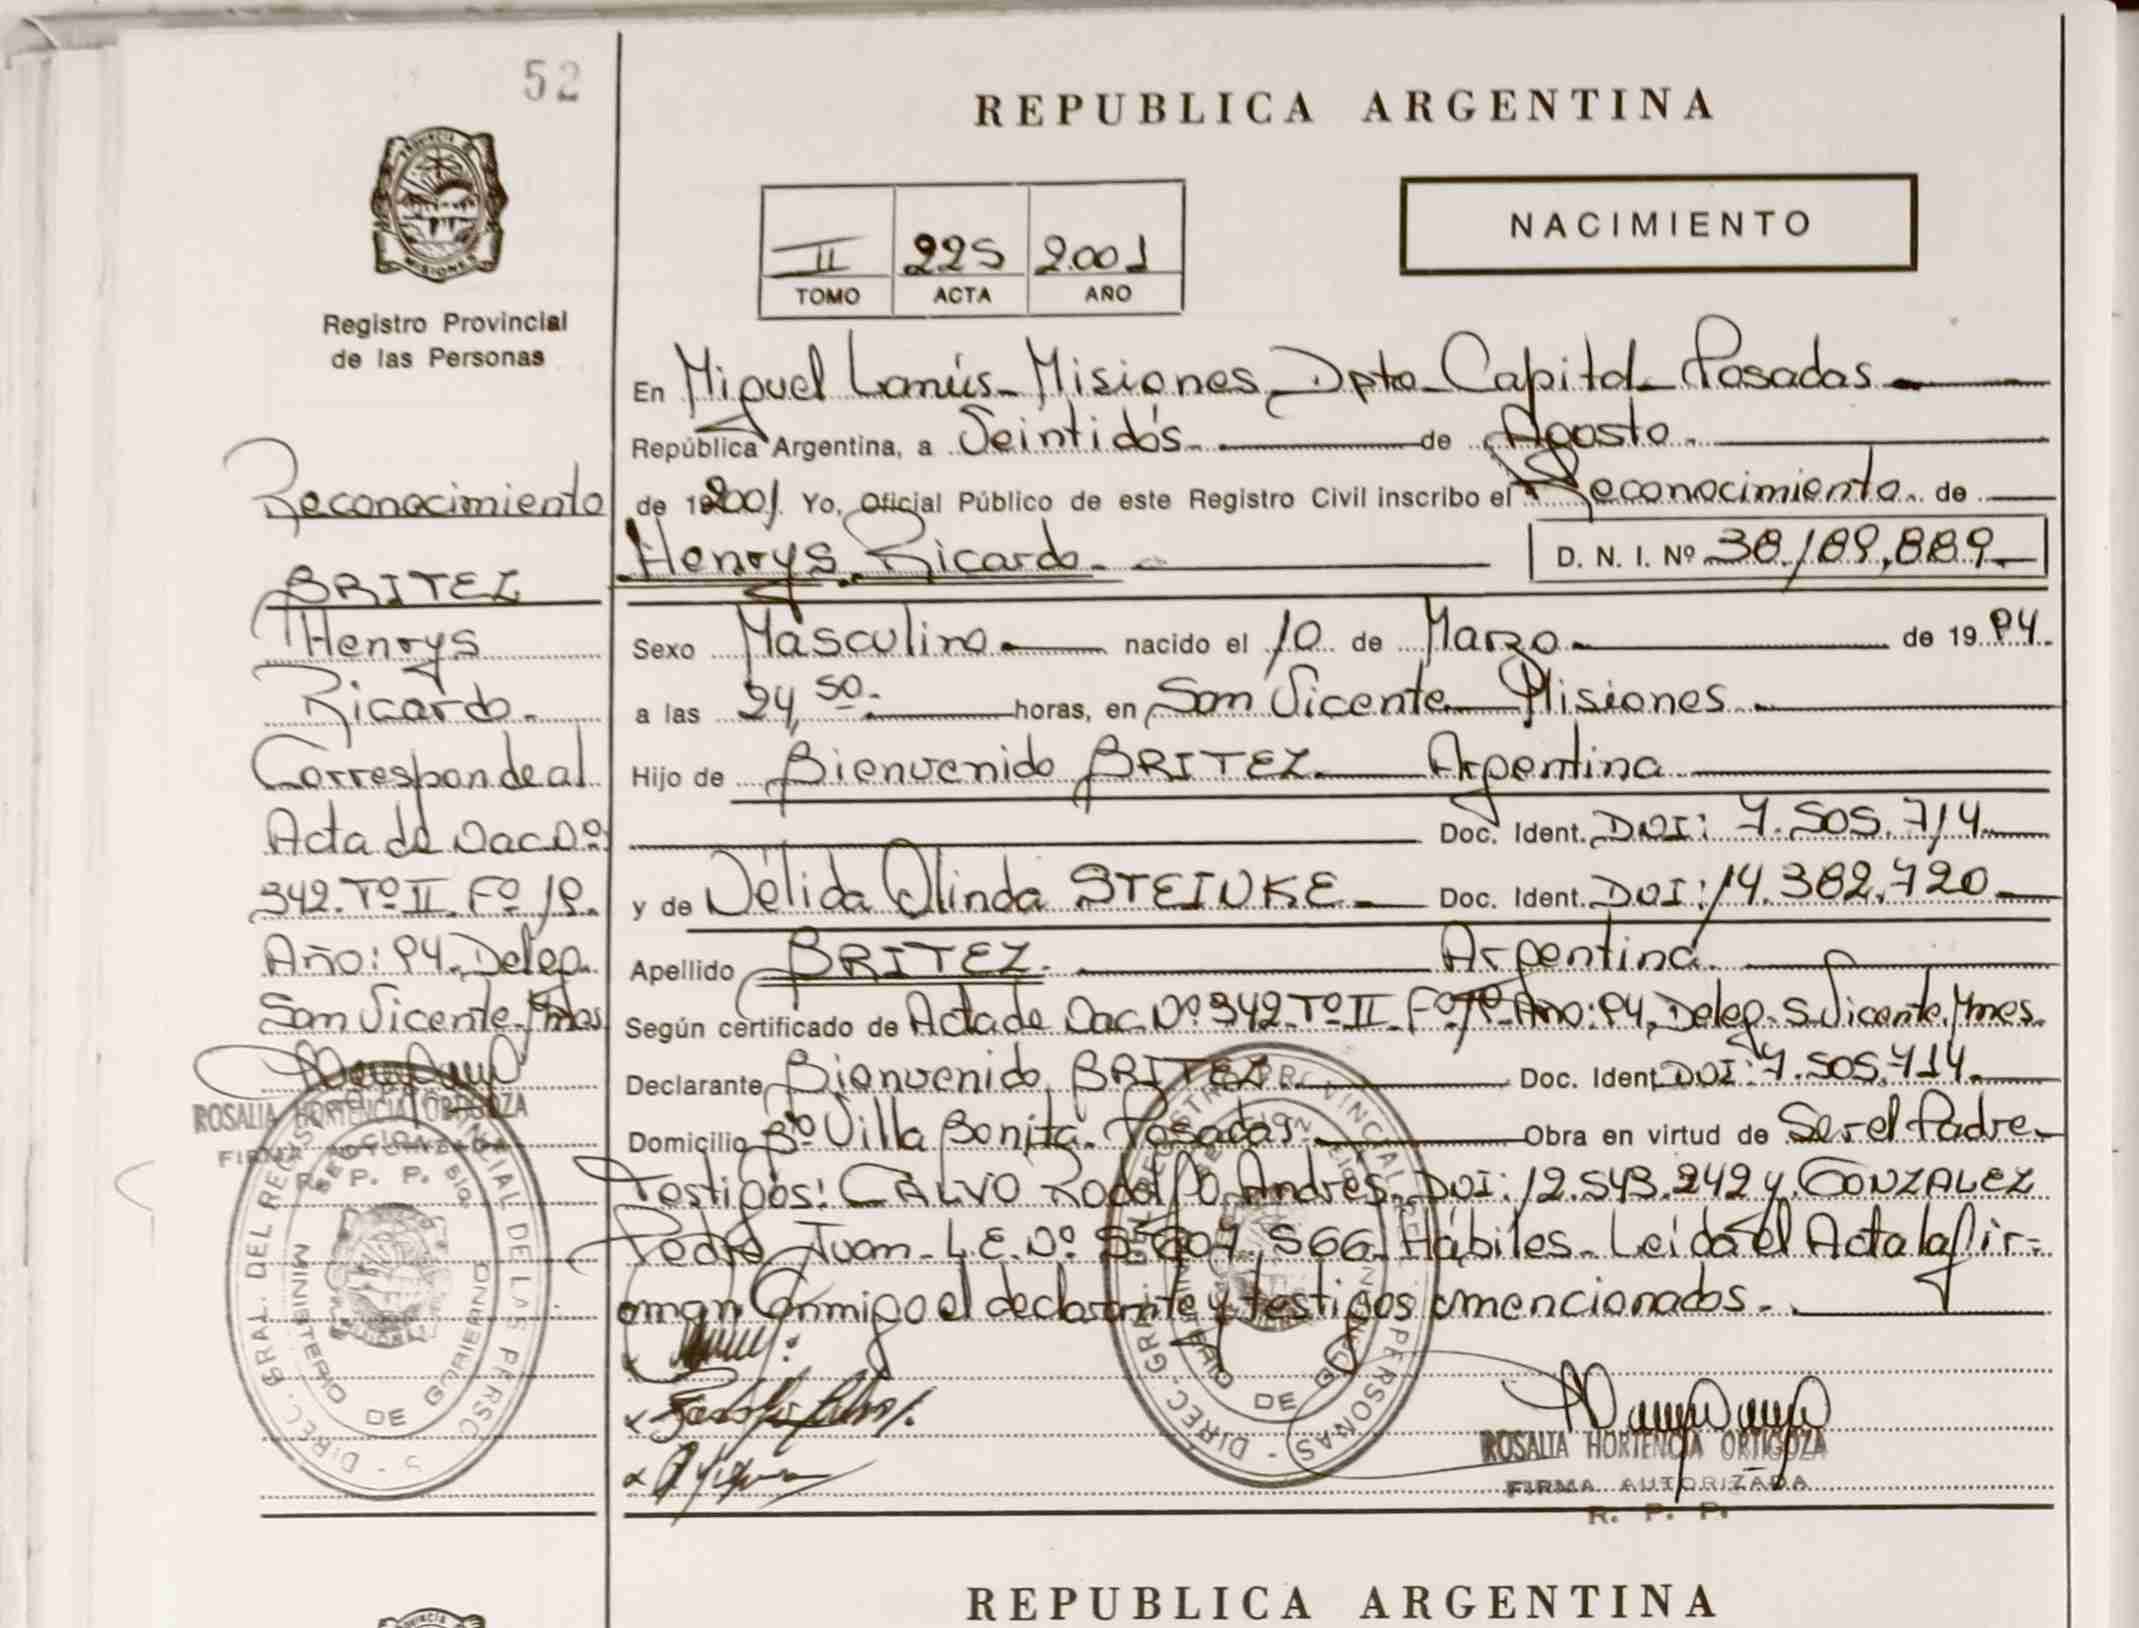 52
REPUBLICA ARGENTINA
NACIMIENTO
II 225 2.001
TOMO ACTA AÑO
PROVINCIA DE MISIONES
Registro Provincial
de las Personas
Reconocimiento
BRITEZ
Henrys
Ricardo.
Corresponde al
Acta de Nac Nº
342. Tº II. Fº 19.
Año: 94. Deleg.
San Vicente. Mnes
ROSALIA HORTENCIA ORTIGOZA
FIRMA AUTORIZADA
R. P. P.
DIREC. GRAL. DEL REG. PROVINCIAL DE LAS PERSONAS
MINISTERIO DE GOBIERNO
En Miguel Lanús - Misiones Dpto Capital - Posadas
República Argentina, a Veintidós de Agosto
de 192001. Yo, Oficial Público de este Registro Civil inscribo el Reconocimiento de
Henrys Ricardo. D. N. I. Nº 38.189.889
Sexo Masculino nacido el 10 de Marzo de 19 94.
a las 24,50 horas, en San Vicente Misiones
Hijo de Bienvenido BRITEZ Argentina
Doc. Ident. DNI: 7.505.714
y de Nélida Olinda STEINKE Doc. Ident. DNI: 14.382.720
Apellido BRITEZ Argentina
Según certificado de Acta de Nac. Nº 342 Tº II Fº 19 Año: 94, Deleg. S. Vicente. Mnes.
Declarante Bienvenido BRITEZ Doc. Ident DNI: 7.505.714.
Domicilio Bº Villa Bonita. Posadas Obra en virtud de Ser el Padre
Testigos: CALVO Rodolfo Andrés DNI: 12.543.242 y GONZALEZ
Pedro Juan - L.E. Nº 566 Hábiles - Leída el Acta la fir-
man Conmigo el declarante y testigos mencionados.
DIREC. GRAL. DEL REGISTRO PROVINCIAL DE LAS PERSONAS
MINISTERIO DE GOBIERNO
ROSALIA HORTENCIA ORTIGOZA
FIRMA AUTORIZADA
R. P. P.
REPUBLICA ARGENTINA